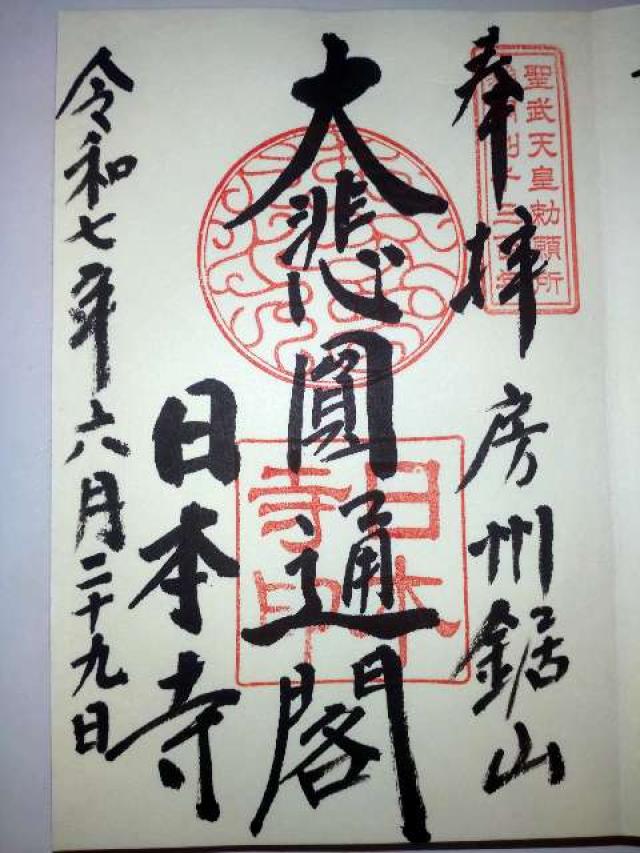 奉拝
房州鋸山
聖武天皇勅願所
大悲圓通閣
日本寺
日本寺印
令和七年六月二十九日